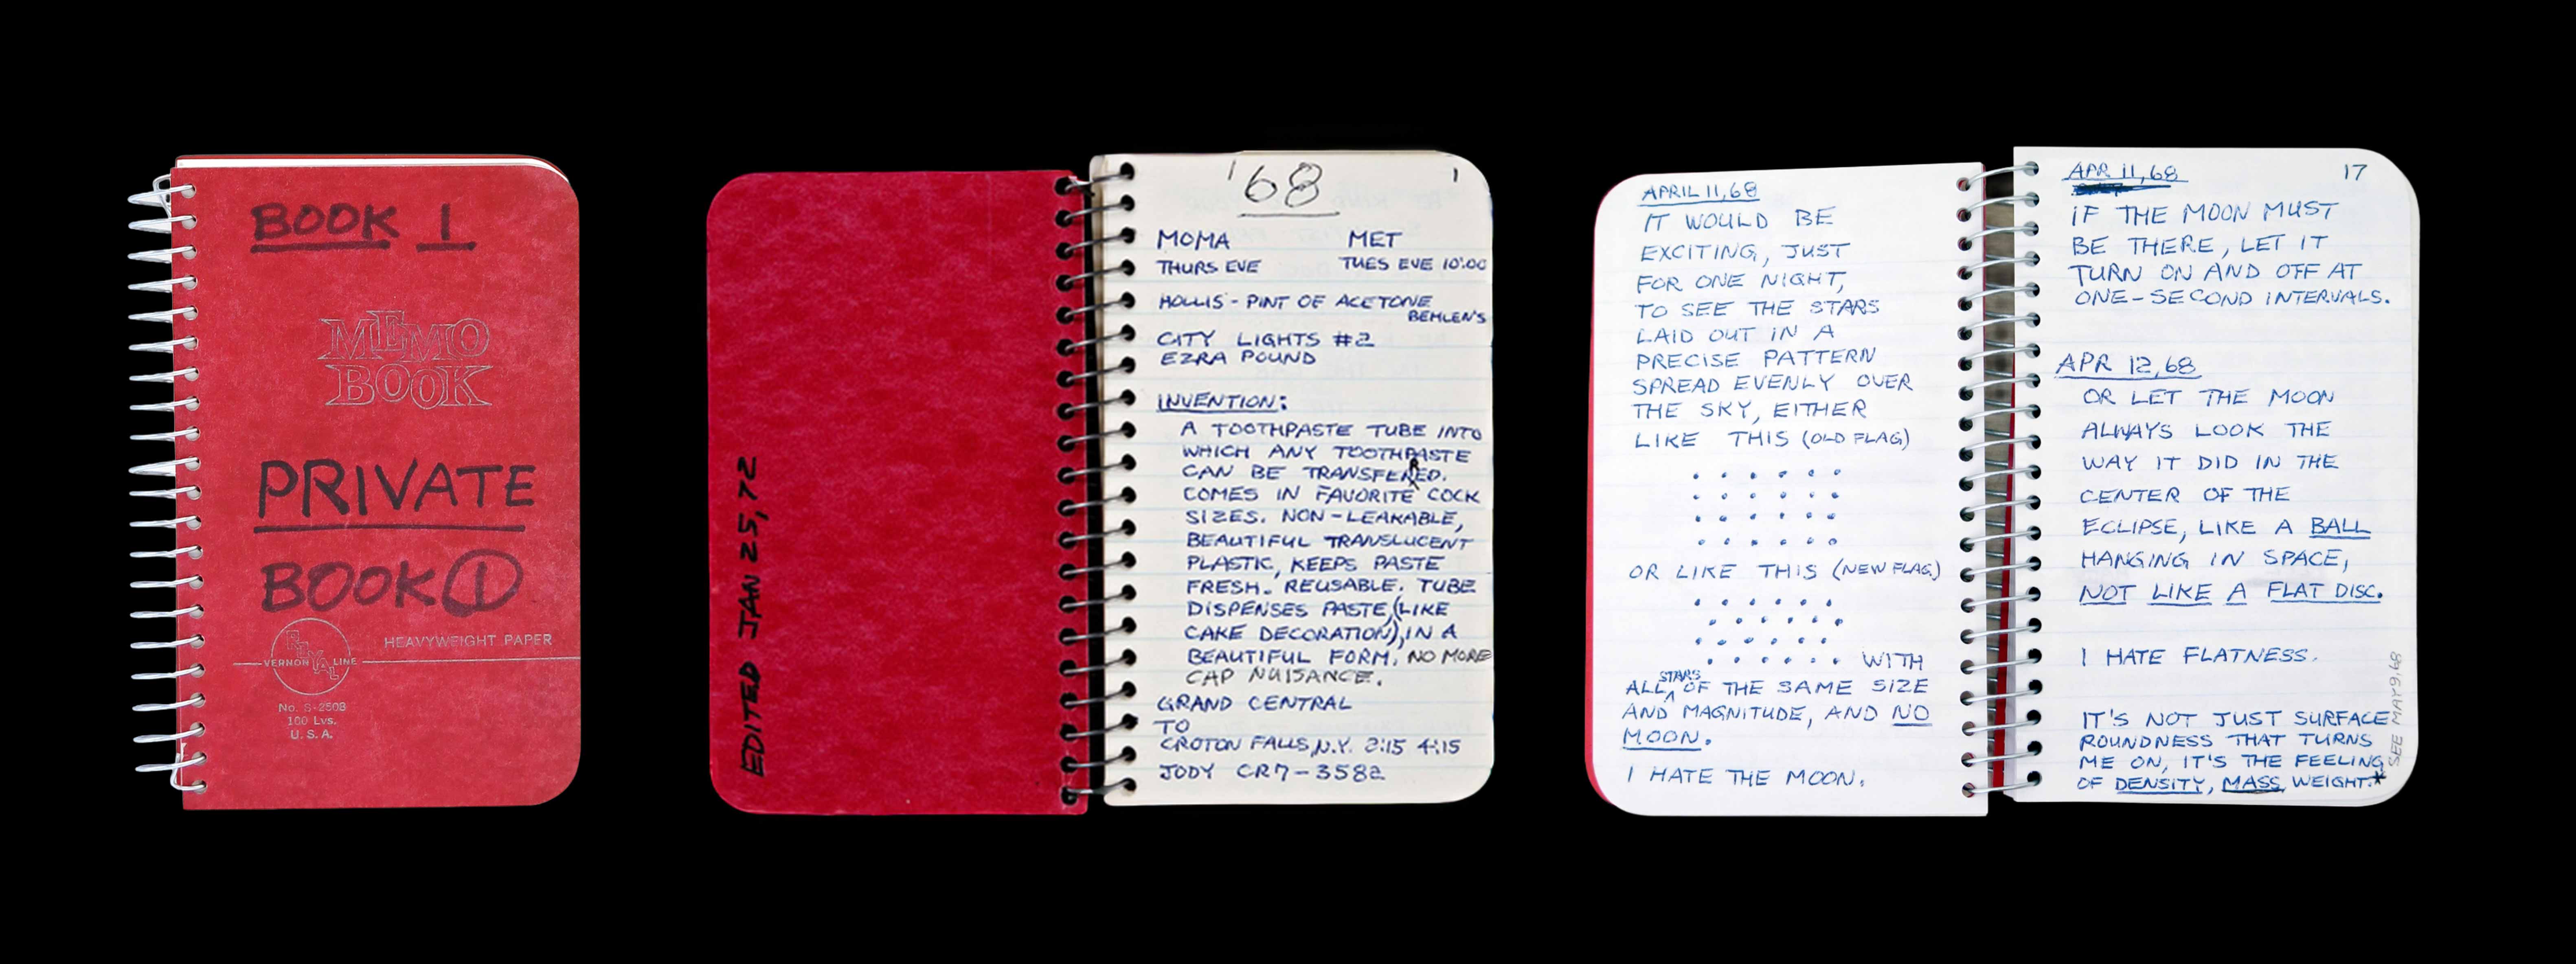 BOOK 1
MEMO
BOOK
PRIVATE
BOOK 1
HEAVYWEIGHT PAPER
ROYAL
VERNON LINE
No. S-2508
100 Lvs.
U.S.A.
EDITED JAN 25, 72
'68 1
MOMA MET
THURS EVE TUES EVE 10:00
HOLLIS - PINT OF ACETONE
BEHLEN'S
CITY LIGHTS #2
EZRA POUND
INVENTION:
A TOOTHPASTE TUBE INTO
WHICH ANY TOOTHPASTE
CAN BE TRANSFERRED.
COMES IN FAVORITE COCK
SIZES. NON-LEAKABLE,
BEAUTIFUL TRANSLUCENT
PLASTIC, KEEPS PASTE
FRESH. REUSABLE. TUBE
DISPENSES PASTE, (LIKE
CAKE DECORATION), IN A
BEAUTIFUL FORM. NO MORE
CAP NUISANCE.
GRAND CENTRAL
TO
CROTON FALLS, N.Y. 2:15 4:15
JODY CR7-3582
APRIL 11, 68
IT WOULD BE
EXCITING, JUST
FOR ONE NIGHT,
TO SEE THE STARS
LAID OUT IN A
PRECISE PATTERN
SPREAD EVENLY OVER
THE SKY, EITHER
LIKE THIS (OLD FLAG)
OR LIKE THIS (NEW FLAG)
WITH
ALL STARS OF THE SAME SIZE
AND MAGNITUDE, AND NO
MOON.
I HATE THE MOON.
APR 11, 68 17
IF THE MOON MUST
BE THERE, LET IT
TURN ON AND OFF AT
ONE-SECOND INTERVALS.
APR 12, 68
OR LET THE MOON
ALWAYS LOOK THE
WAY IT DID IN THE
CENTER OF THE
ECLIPSE, LIKE A BALL
HANGING IN SPACE,
NOT LIKE A FLAT DISC.
I HATE FLATNESS.
IT'S NOT JUST SURFACE
ROUNDNESS THAT TURNS
ME ON, IT'S THE FEELING
OF DENSITY, MASS, WEIGHT.*
SEE MAY 9, 68